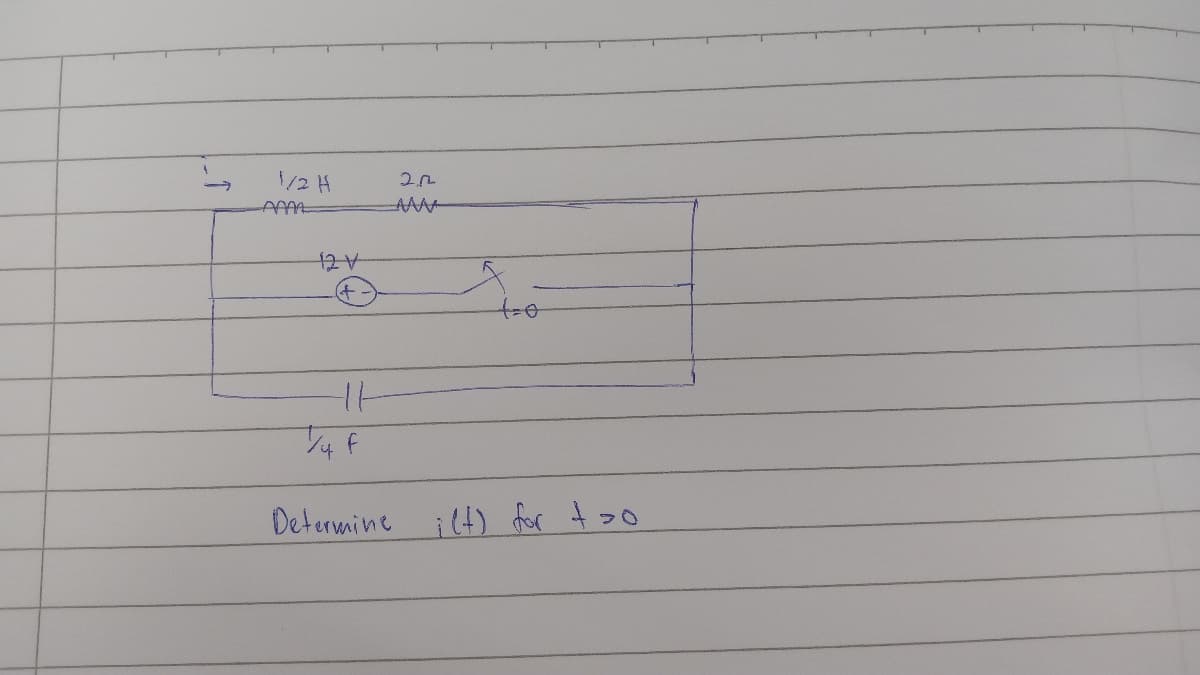 i
→ 1/2 H 2Ω
12 V
+ -
t=0
1/4 f
Determine i(t) for t >0